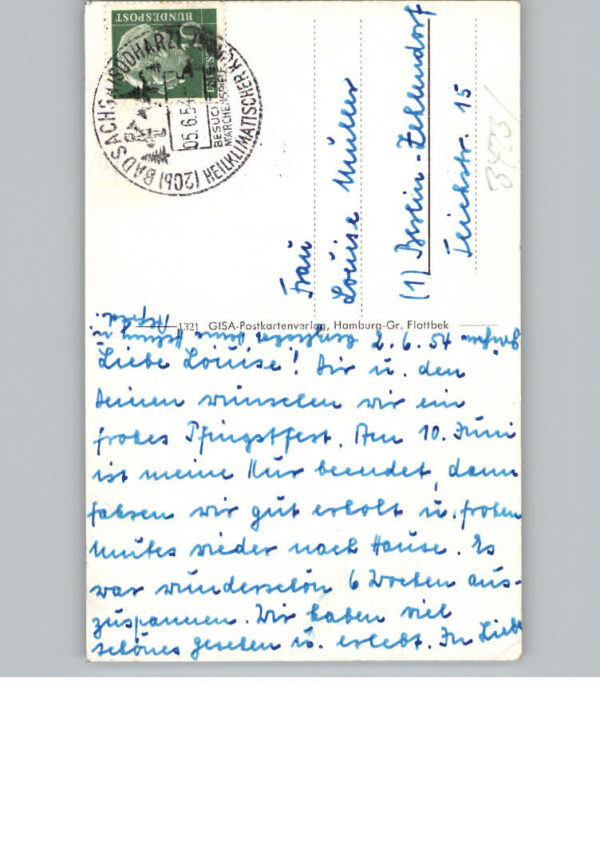 BUNDESPOST
BAD SACHSA (SÜDHARZ)
HEILKLIMATISCHER
(20b)
05.6.54
BESUCHT
MÄRCHEN
Frau
Louise Müller
(1) Berlin-Zehlendorf
Teichstr. 15
1321 GISA-Postkartenverlag, Hamburg-Gr. Flottbek
2. 6. 54
Liebe Louise! Dir u. den
Deinen wünschen wir ein
frohes Pfingstfest. Am 10. Juni
ist meine Kur beendet, dann
fahren wir gut erholt u. frohen
Mutes wieder nach Hause. Es
war wunderschön 6 Wochen aus-
zuspannen. Wir haben viel
schönes gesehen u. erlebt. In Liebe